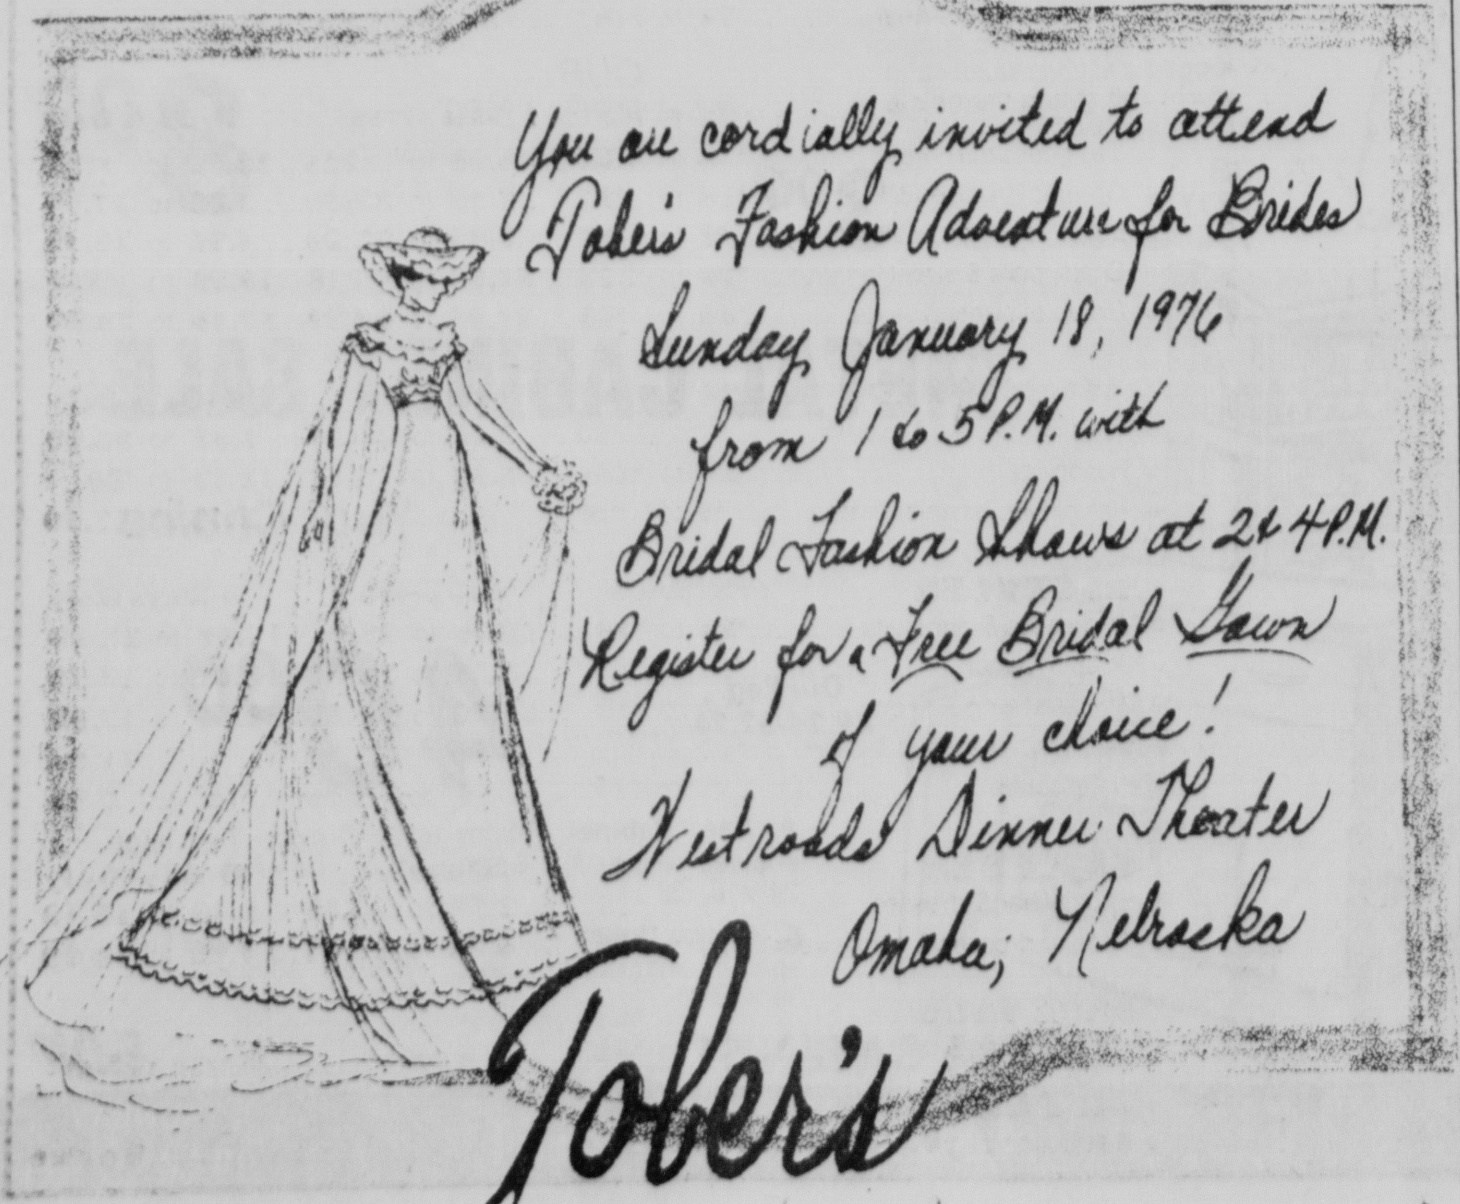 You are cordially invited to attend
Tober's Fashion Adventure for Brides
Sunday January 18, 1976
from 1 to 5 P.M. with
Bridal Fashion Shows at 2 & 4 P.M.
Register for a Free Bridal Gown
of your choice!
Westroads Dinner Theater
Omaha, Nebraska
Tober's